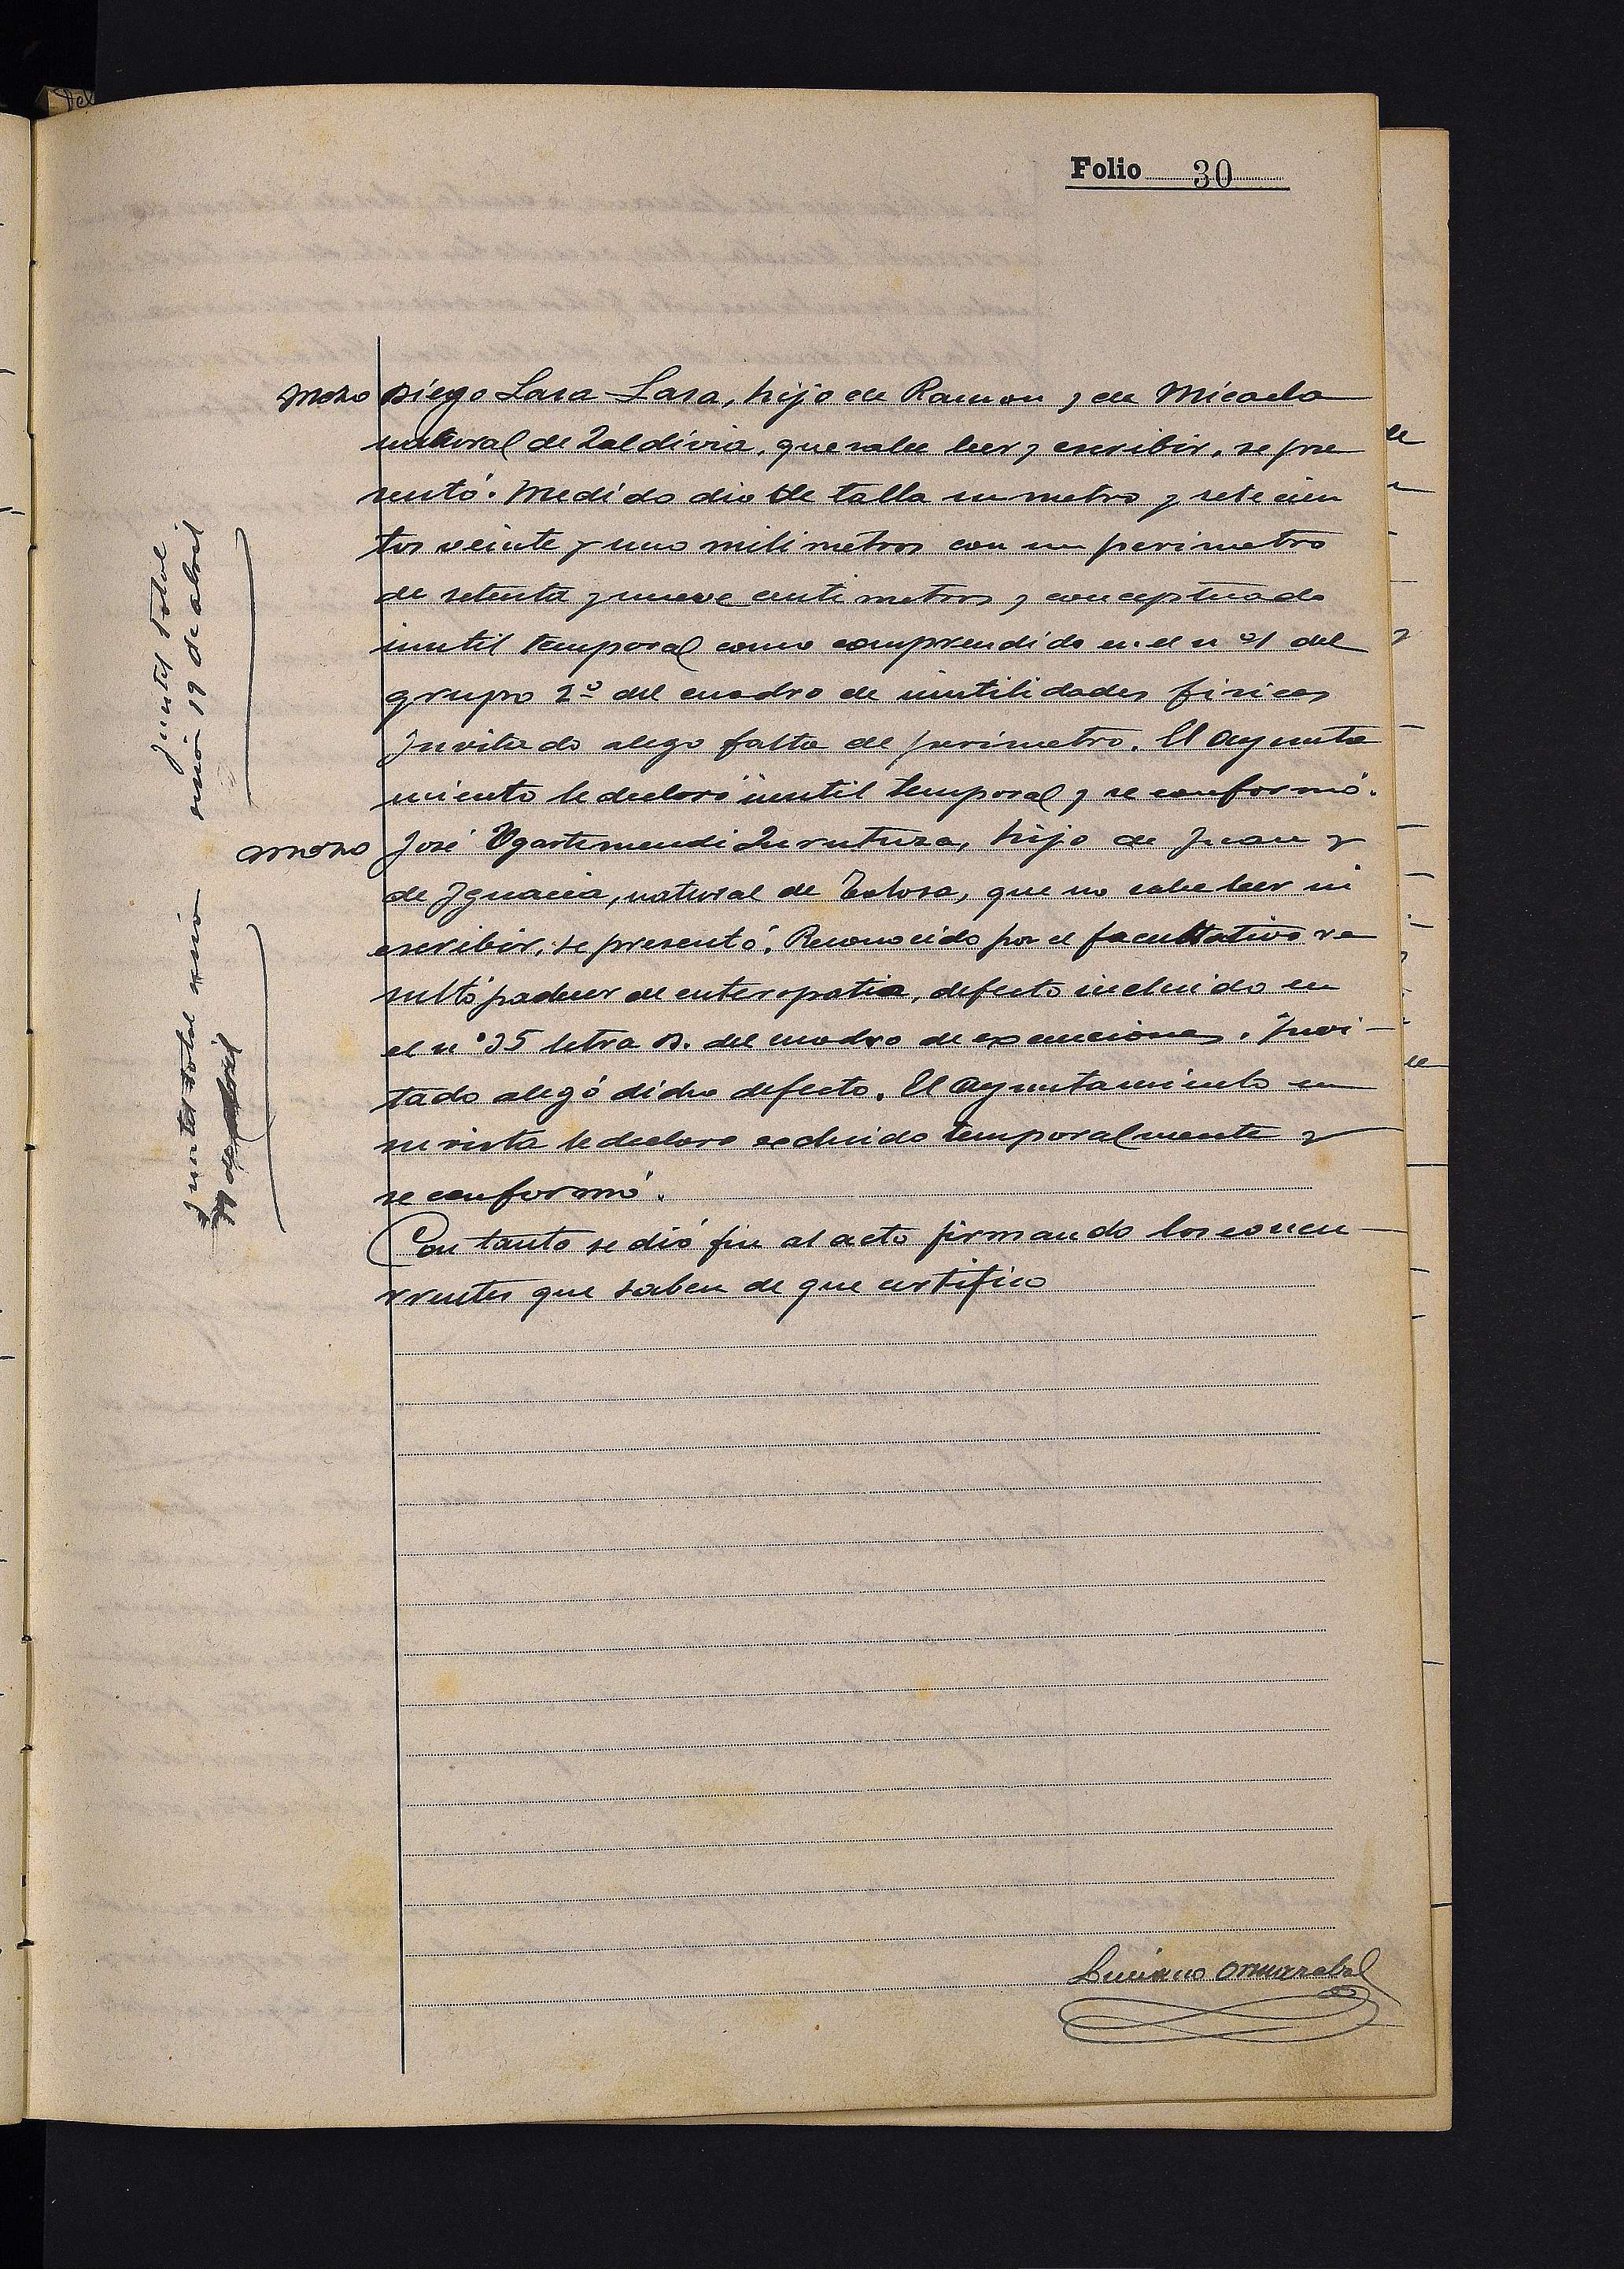 Folio 30
Mozo Diego Lasa Lasa, hijo de Ramon y de Micaela
natural de Zaldivia, que sabe leer y escribir, se pre
sentó. Medido dio de talla un metro y setecien
tos veinte y uno milimetros con un perimetro
de setenta y nueve centimetros y conceptuado
inutil temporal como comprendido en el nº 1 del
grupo 2º del cuadro de inutilidades fisicas
Invitado alego falta de perimetro. El Ayunta
miento le declaró inutil temporal y se conformó.
Mozo José Ugartemendi Zurutuza, hijo de Juan y
de Ignacia, natural de Tolosa, que no sabe leer ni
escribir, se presentó. Reconocido por el facultativo re
sultó padecer de enteropatia, defecto incluido en
el nº 35 letra B. del cuadro de exenciones. Invi-
tado alegó dicho defecto. El Ayuntamiento en
su vista le declaro excluido temporalmente y
se conformó.
Con tanto se dió fin al acto firmando los concu
rrentes que saben de que certifico
inutel total
19 de abril
inutel total
Luciano Ormazabal